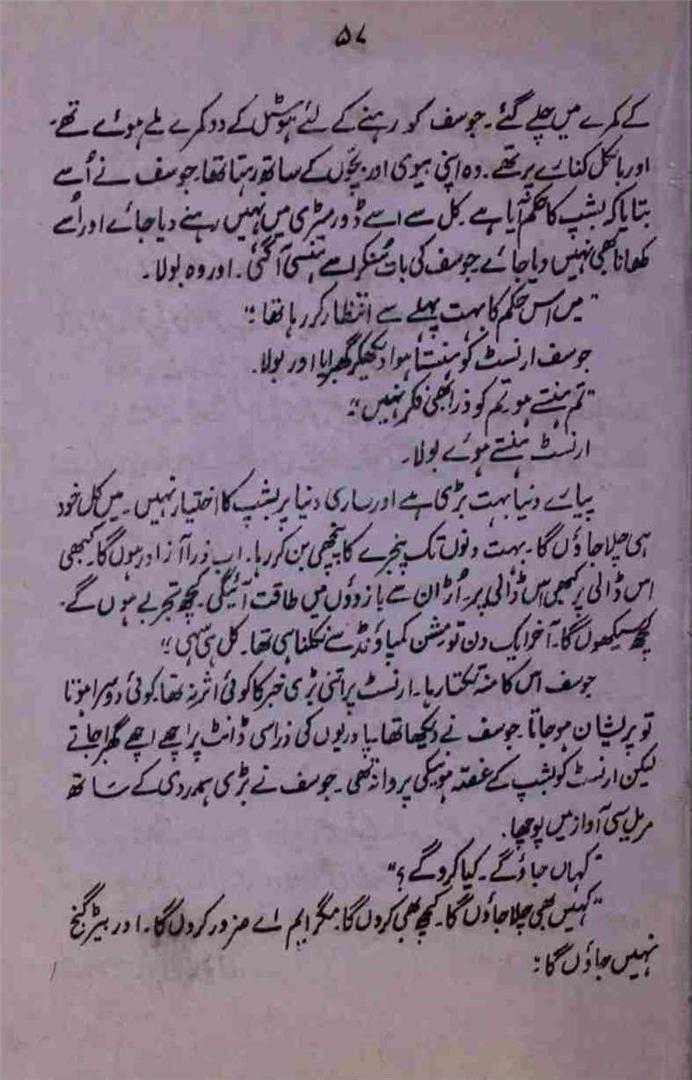 ۵۷
کے کمرے میں چلے گئے۔ جوسف کو رہنے کے لئے ہوسٹل کے دو کمرے ملے ہوئے تھے۔
اور بالکل کنارے پر تھے۔ وہ اپنی بیوی اور بچّوں کے ساتھ رہتا تھا۔ جوسف نے اُسے
بتایا کہ بشپ کا حکم آیا ہے۔ کل سے اسے ڈورمٹری میں نہیں رہنے دیا جائے اور اُسے
کھانا بھی نہیں دیا جائے جوسف کی بات سُنکر اسے ہنسی آ گئی۔ اور وہ بولا۔
"میں اس حکم کا بہت پہلے سے انتظار کر رہا تھا؛"
جوسف ارنسٹ کو ہنستا ہوا دیکھکر گھبرایا اور بولا۔
"تم ہنستے ہو تم کو ذرا بھی فکر نہیں"؛
ارنسٹ ہنستے ہوئے بولا۔
پیارے دنیا بہت بڑی ہے اور ساری دنیا پر بشپ کا اختیار نہیں۔ میں کل خود
ہی چلا جاؤں گا۔ بہت دنوں تک پنجرے کا پنچھی بن کر رہا۔ اب ذرا آزاد رہوں گا۔ کبھی
اس ڈالی پر کبھی اس ڈالی پر۔ اُڑان سے بازوؤں میں طاقت آئیگی۔ کچھ تجربے ہوں گے۔
کچھ سیکھوں گا۔ آخر ایک دن تو مشن کمپاؤنڈ سے نکلنا ہی تھا۔ کل ہی سہی؛"
جوسف اس کا منہ تکتا رہا۔ ارنسٹ پر اتنی بڑی خبر کا کوئی اثر نہ تھا۔ کوئی دوسرا ہوتا
تو پریشان ہو جاتا۔ جوسف نے دیکھا تھا۔ پادریوں کی ذرا سی ڈانٹ پر اچھے اچھے گھبرا جاتے
لیکن ارنسٹ کو بشپ کے غصّہ ہونیکی پروا نہ تھی۔ جوسف نے بڑی ہمدردی کے ساتھ
مریل سی آواز میں پوچھا۔
"کہاں جاؤ گے۔ کیا کرو گے؟"
"کہیں بھی چلا جاؤں گا۔ کچھ بھی کروں گا۔ مگر ایم اے ضرور کروں گا۔ اور
نہیں جاؤں گا؛